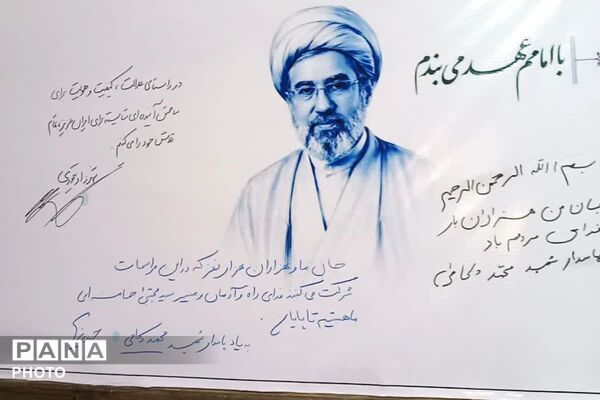 با امامم عهد می بندم
در راستای عدالت، کیفیت و هویت برای
ساختن آینده‌ای شایسته برای ایران عزیز، تمام
تلاش خود را می کنم.
بسم الله الرحمن الرحیم
جان من هزاران بار
فدای مردم باد
شهید محمد
جان ما و هزاران هزار نفر که در این مراسمات
شرکت می کنند فدای راه و آرمان و مسیر سید مجتبی خامنه ای
ما هستیم تا پایان.
به یاد پاسدار شهید محمد
PANA
PHOTO